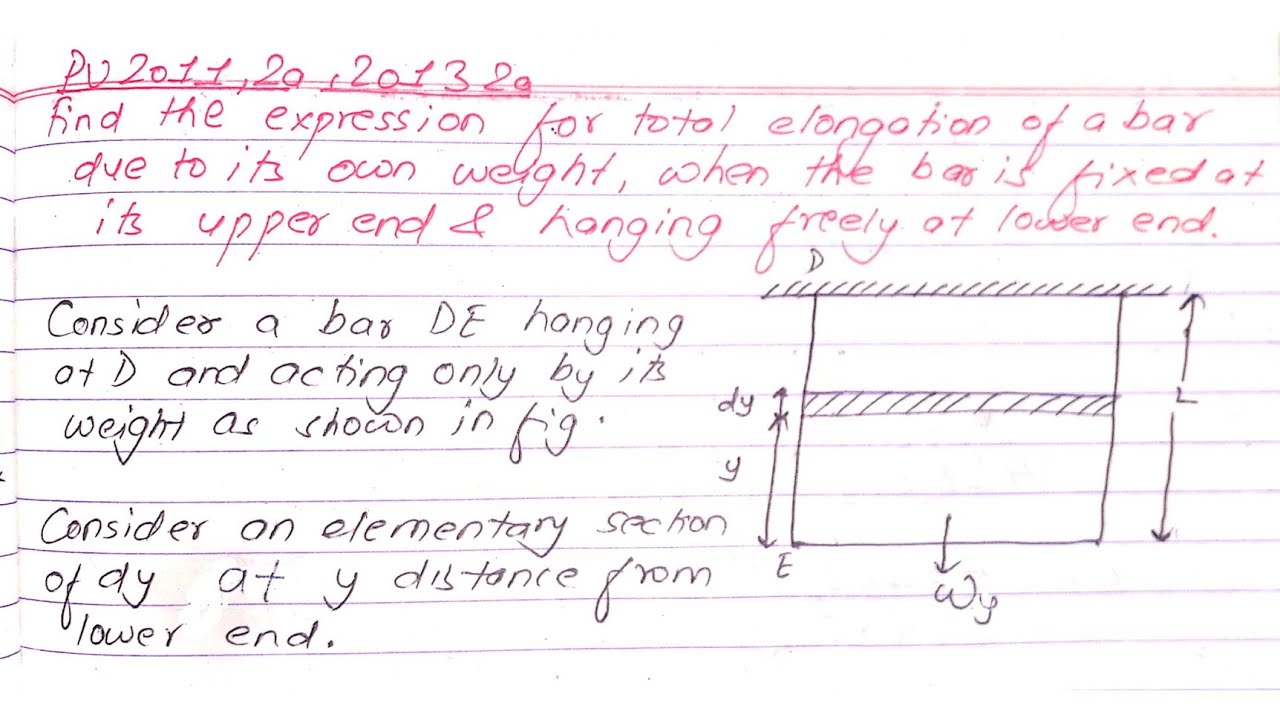 PU 2011, 2a, 2013 2a
find the expression for total elongation of a bar
due to its own weight, when the bar is fixed at
its upper end & hanging freely at lower end.
D
Consider a bar DE hanging
at D and acting only by its
weight as shown in fig.
dy
L
y
Consider an elementary section
of dy at y distance from
lower end.
E
Wy